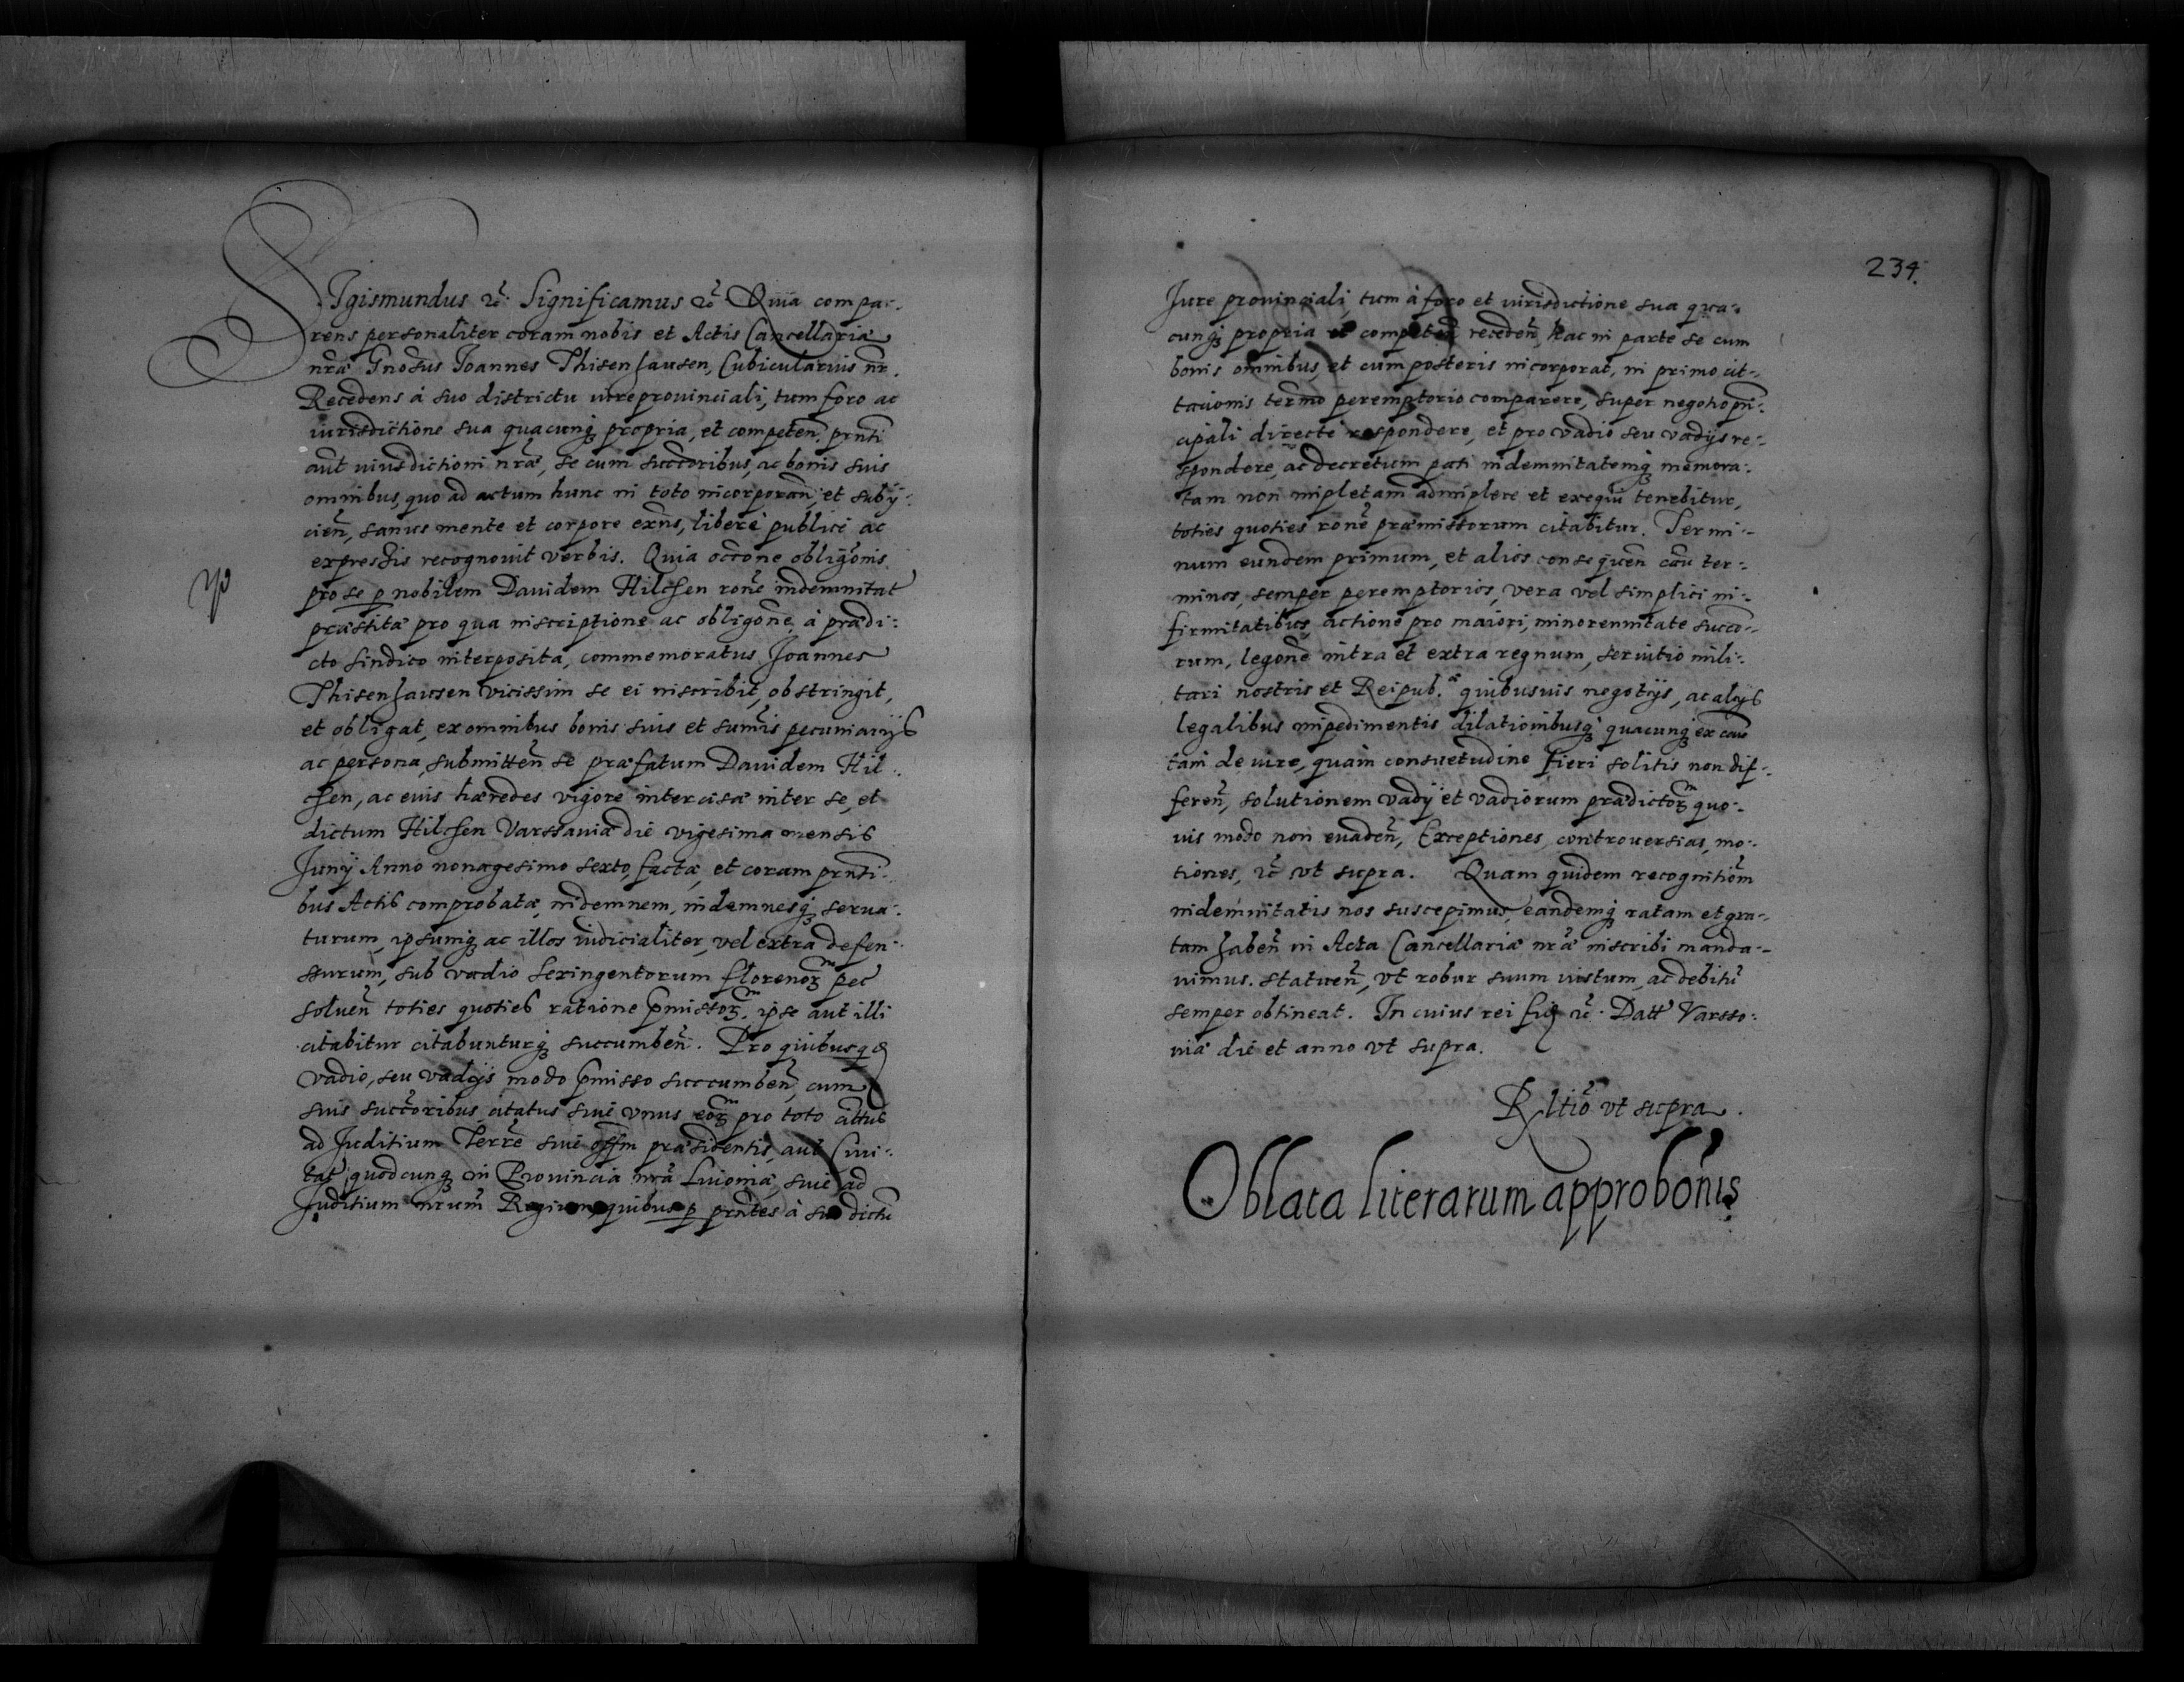 SIgismundus etc. Significamus etc. Quia compa-
rens personaliter coram nobis et Actis Cancellariæ
nr̃æ Gnosus Joannes Thisenhausen, Cubicularius nr̃.
Recedens á suo districtu iure provinciali, tum foro ac
iurisdictione sua quacunq; propria, et competen̄. prnti
aut̃ iurisdictioni nr̃æ, se cum succoribus, ac bonis suis
omnibus, quo ad actum hunc in toto incorporan̄, et subij-
cien̄, sanus mente et corpore exñs, liberé publicé ac
expressis recognovit verbis. Quia occõne obligõnis
pro se p nobilem Davidem Hilchen rone indemnitat
præstitæ pro qua inscriptione ac obligõne, á prædi-
cto sindico interposita, commemoratus Joannes
Thisenhausen vicissim se ei inscribit, obstringit,
et obligat, ex omnibus bonis suis et sumis pecuniarijs
ac persona, submitten̄ se præfatum Davidem Hil-
chen, ac euis hæredes vigore intercisæ inter se, et
dictum Hilchen Varssaviæ die vigesima mensis
Junij Anno nonagesimo sexto, factæ, et coram prnti-
bus Actis comprobatæ, indemnem, indemnesq; serua-
turum, ipsumq; ac illos iudicialiter, vel extra defen-
surum, sub vadio sexingentorum florenor̃m pec
soluen̄ toties quoties ratione p̃missor̃m. ipse aut illi
citabitur citabunturq; succumben̄. Pro quibus
vadio, seu vadijs modo p̃misso succumben̄, cum
suis succtoribus citatus siué vnus eor̃m pro toto cittus
ad Juditium Terre siué præsidentis, aut Ciui-
tat quodcunq; in Provincia nr̃a Livoniæ, siué ad
Juditium nr̃um Regium quibus p prñtes á suo dictu
234.
Jure provinciali, tum á foro et iurisdictione sua qua-
cunq; propria et competen̄ receden̄, hac in parte se cum
bonis omnibus, et cum posteris incorporat, in primo cit-
tationis termo peremptorio comparere, super negotio prin-
cipali directé respondere, et pro vadio seu vadijs re-
spondere, ac decretum pati indemnitatemq; memora-
tam non impletam adimplere et exequi tenebitur,
toties quoties rone præmissorum citabitur. Termi-
num eundem primum, et alios consequen̄ ter-
minos, semper peremptorios, vera vel simplici in-
firmitatibus, actione pro maiori, minorennitate succo-
rum, legone intra et extra regnum, seruitio mili-
tari nostris et Reipub.æ quibusuis negotijs, ac alijs
legalibus impedimentis dilationibusq; quacunq; ex
tam de iure, quam consuetudine fieri solitis non dif-
feren̄, solutionem vadij et vadiorum prædictor̃m quo-
uis modo non euaden̄, Exceptiones, controuersias, mo-
tiones, etc vt supra. Quam quidem recognitiom
indemnitatis nos suscepimus, eandemq; ratam et gra-
tam haben̄ in Acta Cancellariæ nr̃æ inscribi manda-
uimus. Statuen̄, vt robur suum iustum, ac debitũ
semper obtineat. In cuius rei fid etc. Datt Varsso-
uiæ die et anno vt supra.
Rltio vt supra.
Oblata literarum approbonis